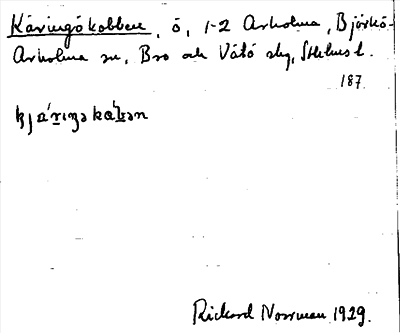 Käringökobben, ö, 1-2 Arholma, Björkö-
Arholma sn, Bro och Vätö slg, Sthlms l.
187.
Rickard Norrman 1929.